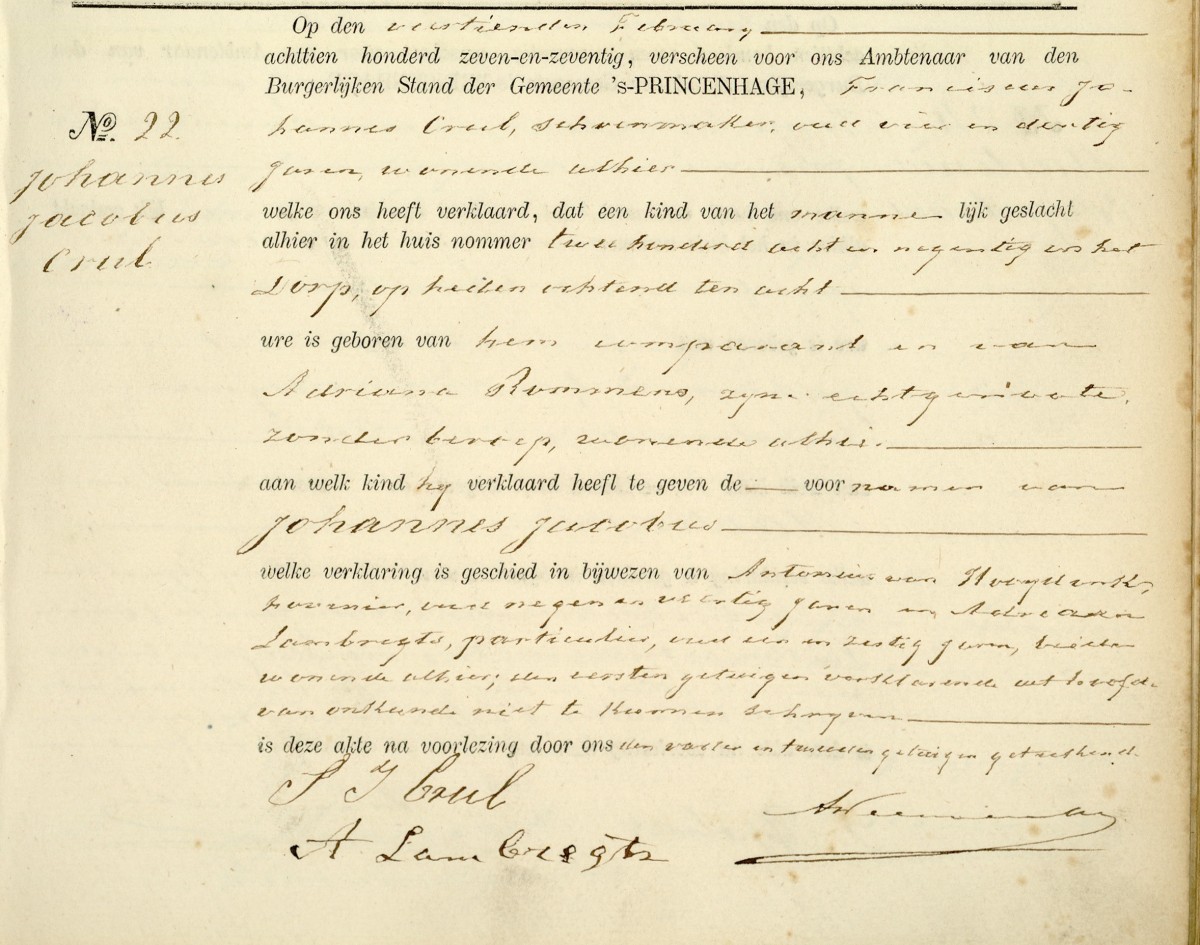 Op den veertienden February
achttien honderd zeven-en-zeventig, verscheen voor ons Ambtenaar van den
Burgerlijken Stand der Gemeente 's-PRINCENHAGE, Franciscus Jo-
No. 22.
hannes Crul, schoenmaker, oud vier en dertig
Johannes
jaren, wonende alhier
Jacobus
welke ons heeft verklaard, dat een kind van het manne lijk geslacht
Crul
alhier in het huis nommer twee honderd acht en negentig in het
Dorp, op heden ochtend ten acht
ure is geboren van hem comparant en van
Adriana Rommens, zyne echtgenoote,
zonder beroep, wonende alhier.
aan welk kind hy verklaard heeft te geven de voor namen van
Johannes Jacobus
welke verklaring is geschied in bijwezen van Antonius van Hooydonk,
hovenier, oud negen en veertig jaren en Adriaan
Lambregts, particulier, oud een en zestig jaren, beiden
wonende alhier; den eersten getuigen verklarende uit hoofde
van onkunde niet te kunnen schryven
is deze akte na voorlezing door ons den vader en tweeden getuigen geteekend.
F J Crul
A Lambregts